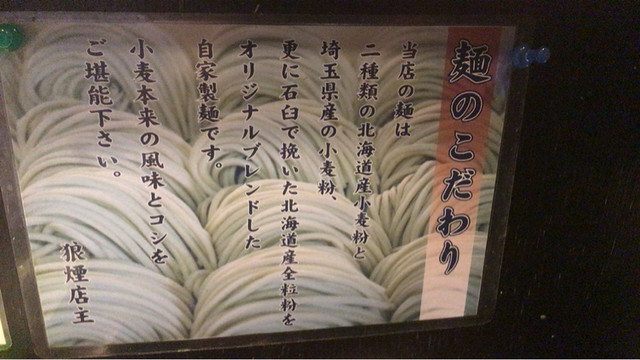 麺のこだわり
当店の麺は
二種類の北海道産小麦粉と
埼玉県産の小麦粉、
更に石臼で挽いた北海道産全粒粉を
オリジナルブレンドした
自家製麺です。
小麦本来の風味とコシを
ご堪能下さい。
狼煙店主